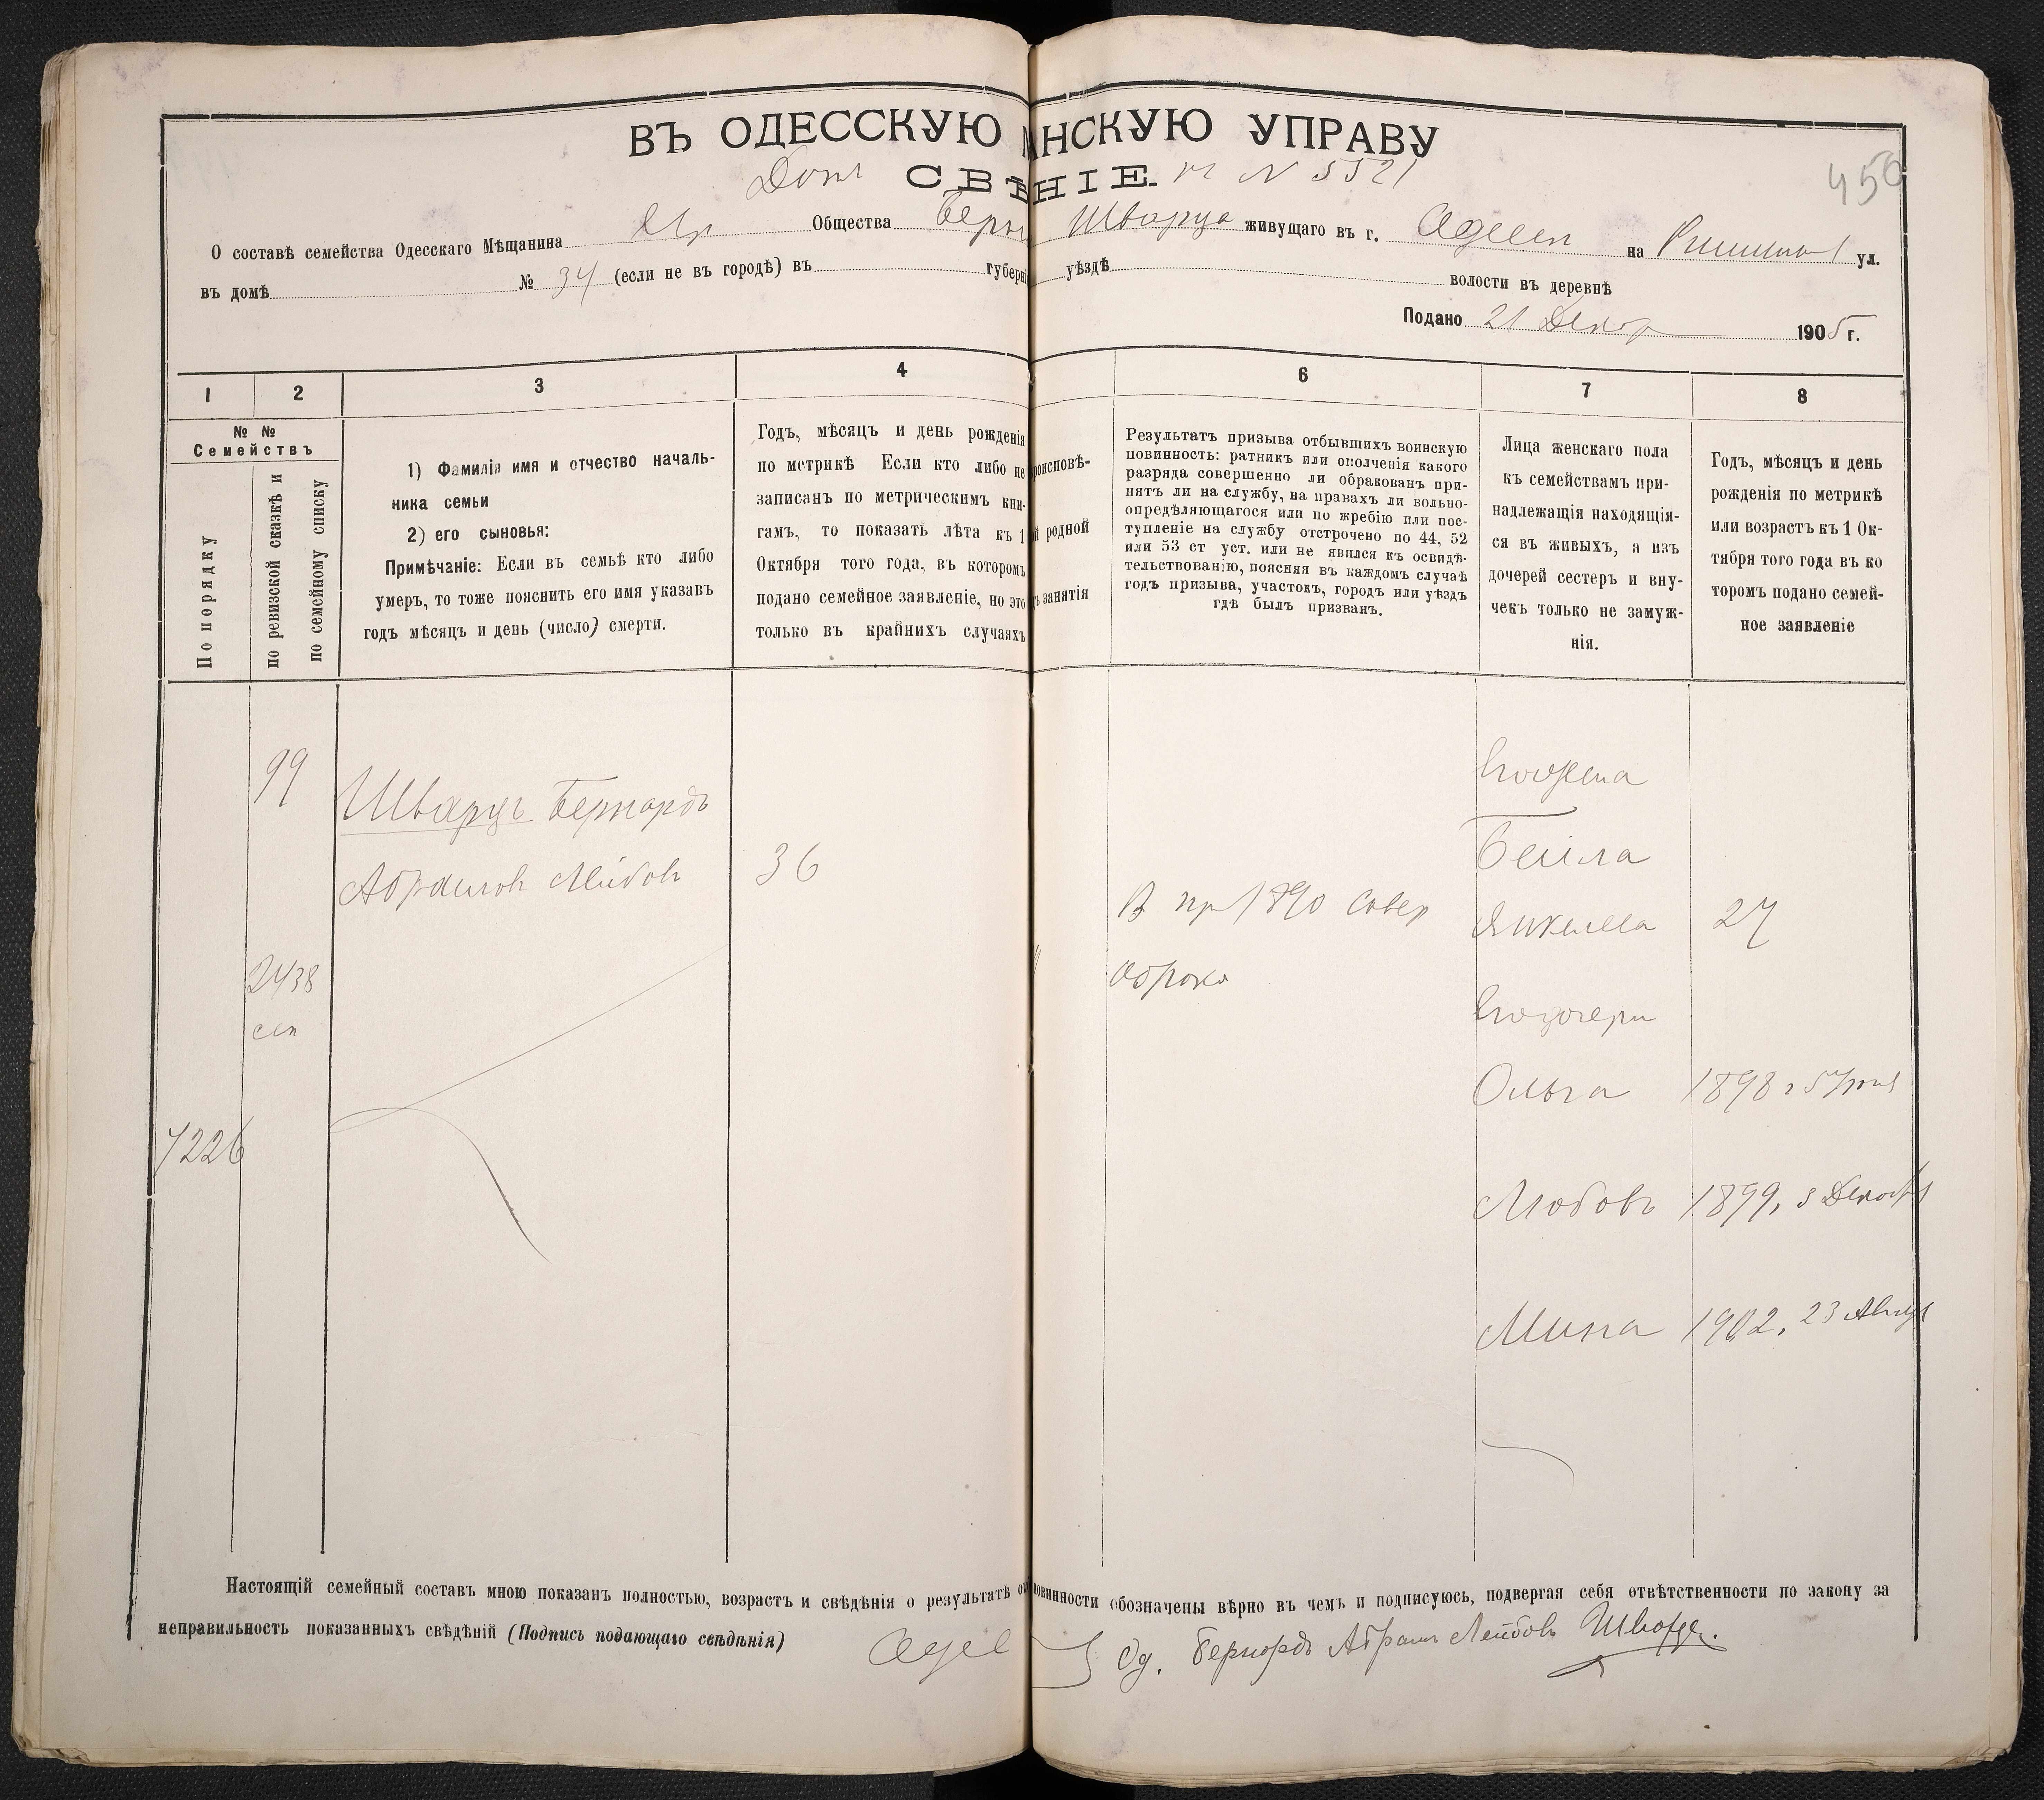 ВЪ ОДЕССКУЮ НСКУЮ УПРАВУ
450
Доп СВѢНІЕ. къ N 5521
О составѣ семейства Одесскаго Мѣщанина Евр Общества Берн Шварца живущаго въ г. Одессѣ на ул.
въ домѣ № 34 (если не въ городѣ) въ губерн уѣздѣ волости въ деревнѣ
Подано 21 Декабр 1905 г.
1 2 3 4 6 7 8
№ №
Семействъ
По порядку
по ревизской сказкѣ и
по семейному списку
1) Фамилія имя и отчество началь-
ника семьи
2) его сыновья:
Примѣчаніе: Если въ семьѣ кто либо
умеръ, то тоже пояснить его имя указавъ
годъ мѣсяцъ и день (число) смерти.
Годъ, мѣсяцъ и день рожденія
по метрикѣ Если кто либо не
записанъ по метрическимъ кни-
гамъ, то показать лѣта къ 1
Октября того года, въ которомъ
подано семейное заявленіе, но это
только въ крайнихъ случаяхъ
роисповѣ-
й родной
ъ занятія
Результатъ призыва отбывшихъ воинскую
повинность: ратникъ или ополченія какого
разряда совершенно ли обракованъ при-
нятъ ли на службу, на правахъ ли вольно-
опредѣляющагося или по жребію или пос-
тупленіе на службу отстрочено по 44, 52
или 53 ст уст. или не явился къ освидѣ-
тельствованію, поясняя въ каждомъ случаѣ
годъ призыва, участокъ, городъ или уѣздъ
гдѣ былъ призванъ.
Лица женскаго пола
къ семействамъ при-
надлежащія находящія-
ся въ живыхъ, а изъ
дочерей сестеръ и вну-
чекъ только не замуж-
нія.
Годъ, мѣсяцъ и день
рожденія по метрикѣ
или возрастъ къ 1 Ок-
тября того года въ ко
торомъ подано семей-
ное заявленіе
99
Шварцъ Бернардъ
Абрамовъ Лейбовъ
36
2438
сеп
7226
В пр 1890 совер
оброко
Его жена
Бейла
27
Его дочери
Ольга 1898 г 5
Любовь 1899, 3 Декабря
Мина 1902, 23 Август
Настоящій семейный составъ мною показанъ полностью, возрастъ и свѣдѣнія о результатѣ о повинности обозначены вѣрно въ чемъ и подписуюсь, подвергая себя отвѣтственности по закону за
неправильность показанныхъ свѣдѣній (Подпись подающаго свѣдѣнія)
Одес Од. Бернардъ Абрамъ Лейбовъ Шварцъ.